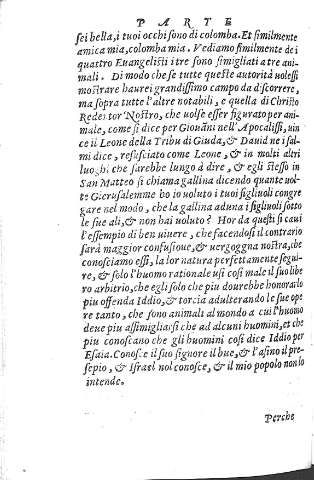 PARTE
sei bella, i tuoi occhi sono di colomba. Et similmente
amica mia, colomba mia. Vediamo similmente de i
quattro Euangelisti i tre sono simigliati a tre ani
mali. Di modo che se tutte queste autorità uolessi
mostrare haurei grandissimo campo da discorrere,
ma sopra tutte l'altre notabili, e quella di Christo
Redentor Nostro, che uolse esser figurato per ani
male, come si dice per Giouãni nell'Apocalissi, uin
ce il Leone della Tribu di Giuda, & Dauid ne i sal
mi dice, resusciato come Leone, & in molti altri
luoghi che sarebbe lungo à dire, & egli stesso in
San Matteo si chiama gallina dicendo quante uol-
te Gierusalemme ho io uoluto i tuoi figliuoli congre
gare nel modo, che la gallina aduna i figliuoli sotto
le sue ali, & non hai uoluto? Hor da questi si caui
l'essempio di ben uiuere, che facendosi il contrario
sarà maggior confusione, & uergogna nostra, che
conosciamo essi, la lor natura perfettamente segui-
re, & solo l'huomo rationale usi cosi male il suo libe
ro arbitrio, che egli solo che piu dourebbe honorarlo
piu offenda Iddio, & torcia adulterando le sue ope
re tanto, che sono animali al mondo a cui l'huomo
deue piu assimigliarsi che ad alcuni huomini, et che
piu conoscano che gli huomini cosi dice Iddio per
Esaia. Conosce il suo signore il bue, & l'asino il pre-
sepio, & Israel nol conosce, & il mio popolo non lo
intende.
Perche